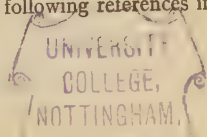 following references in
UNIVERSITY
COLLEGE,
NOTTINGHAM.